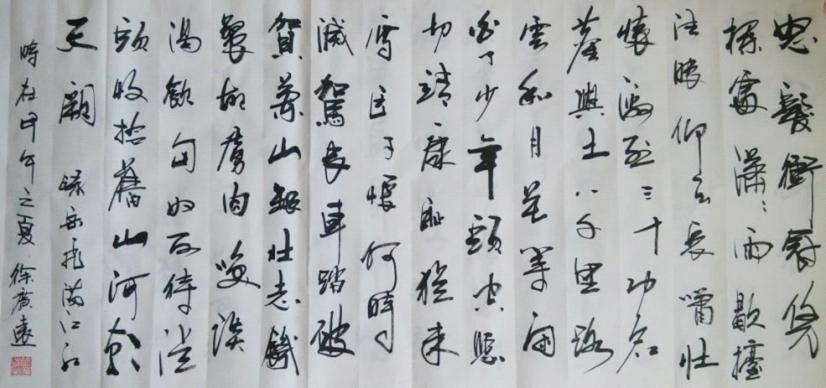 怒髮衝冠凭
欄處瀟〻雨歇擡
望眼仰天長嘯壯
懷激烈三十功名
塵與土八千里路
雲和月莫等閒
白了少年頭空悲
切靖康恥猶未
雪臣子恨何時
滅駕長車踏破
賀蘭山缺壯志飢
餐胡虜肉笑談
渴飲匈奴血待從
頭收拾舊山河朝
天闕 錄岳飛滿江紅
時在甲午之夏 徐廣遠